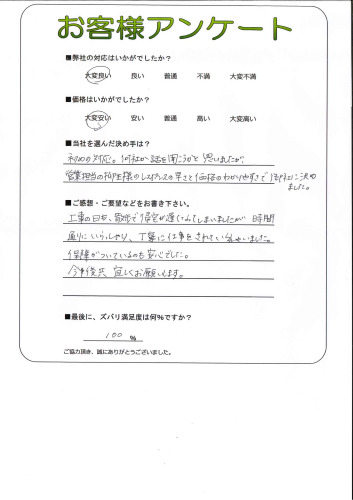 お客様アンケート
■弊社の対応はいかがでしたか？
大変良い 良い 普通 不満 大変不満
■価格はいかがでしたか？
大変安い 安い 普通 高い 大変高い
■当社を選んだ決め手は？
初めの対応。何社か話を聞こうと思いましたが、
営業担当の 様のレスポンスの早さと価格のわかりやすさで御社に決め
ました。
■ご感想・ご要望などをお書き下さい。
工事の日、 で帰宅が遅くなってしまいましたが 時間
通りにいらっしゃり、丁寧に仕事をされていらっしゃいました。
保障がついているのも安心でした。
今後共 宜しくお願いします。
■最後に、ズバリ満足度は何％ですか？
100 ％
ご協力頂き、誠にありがとうございました。